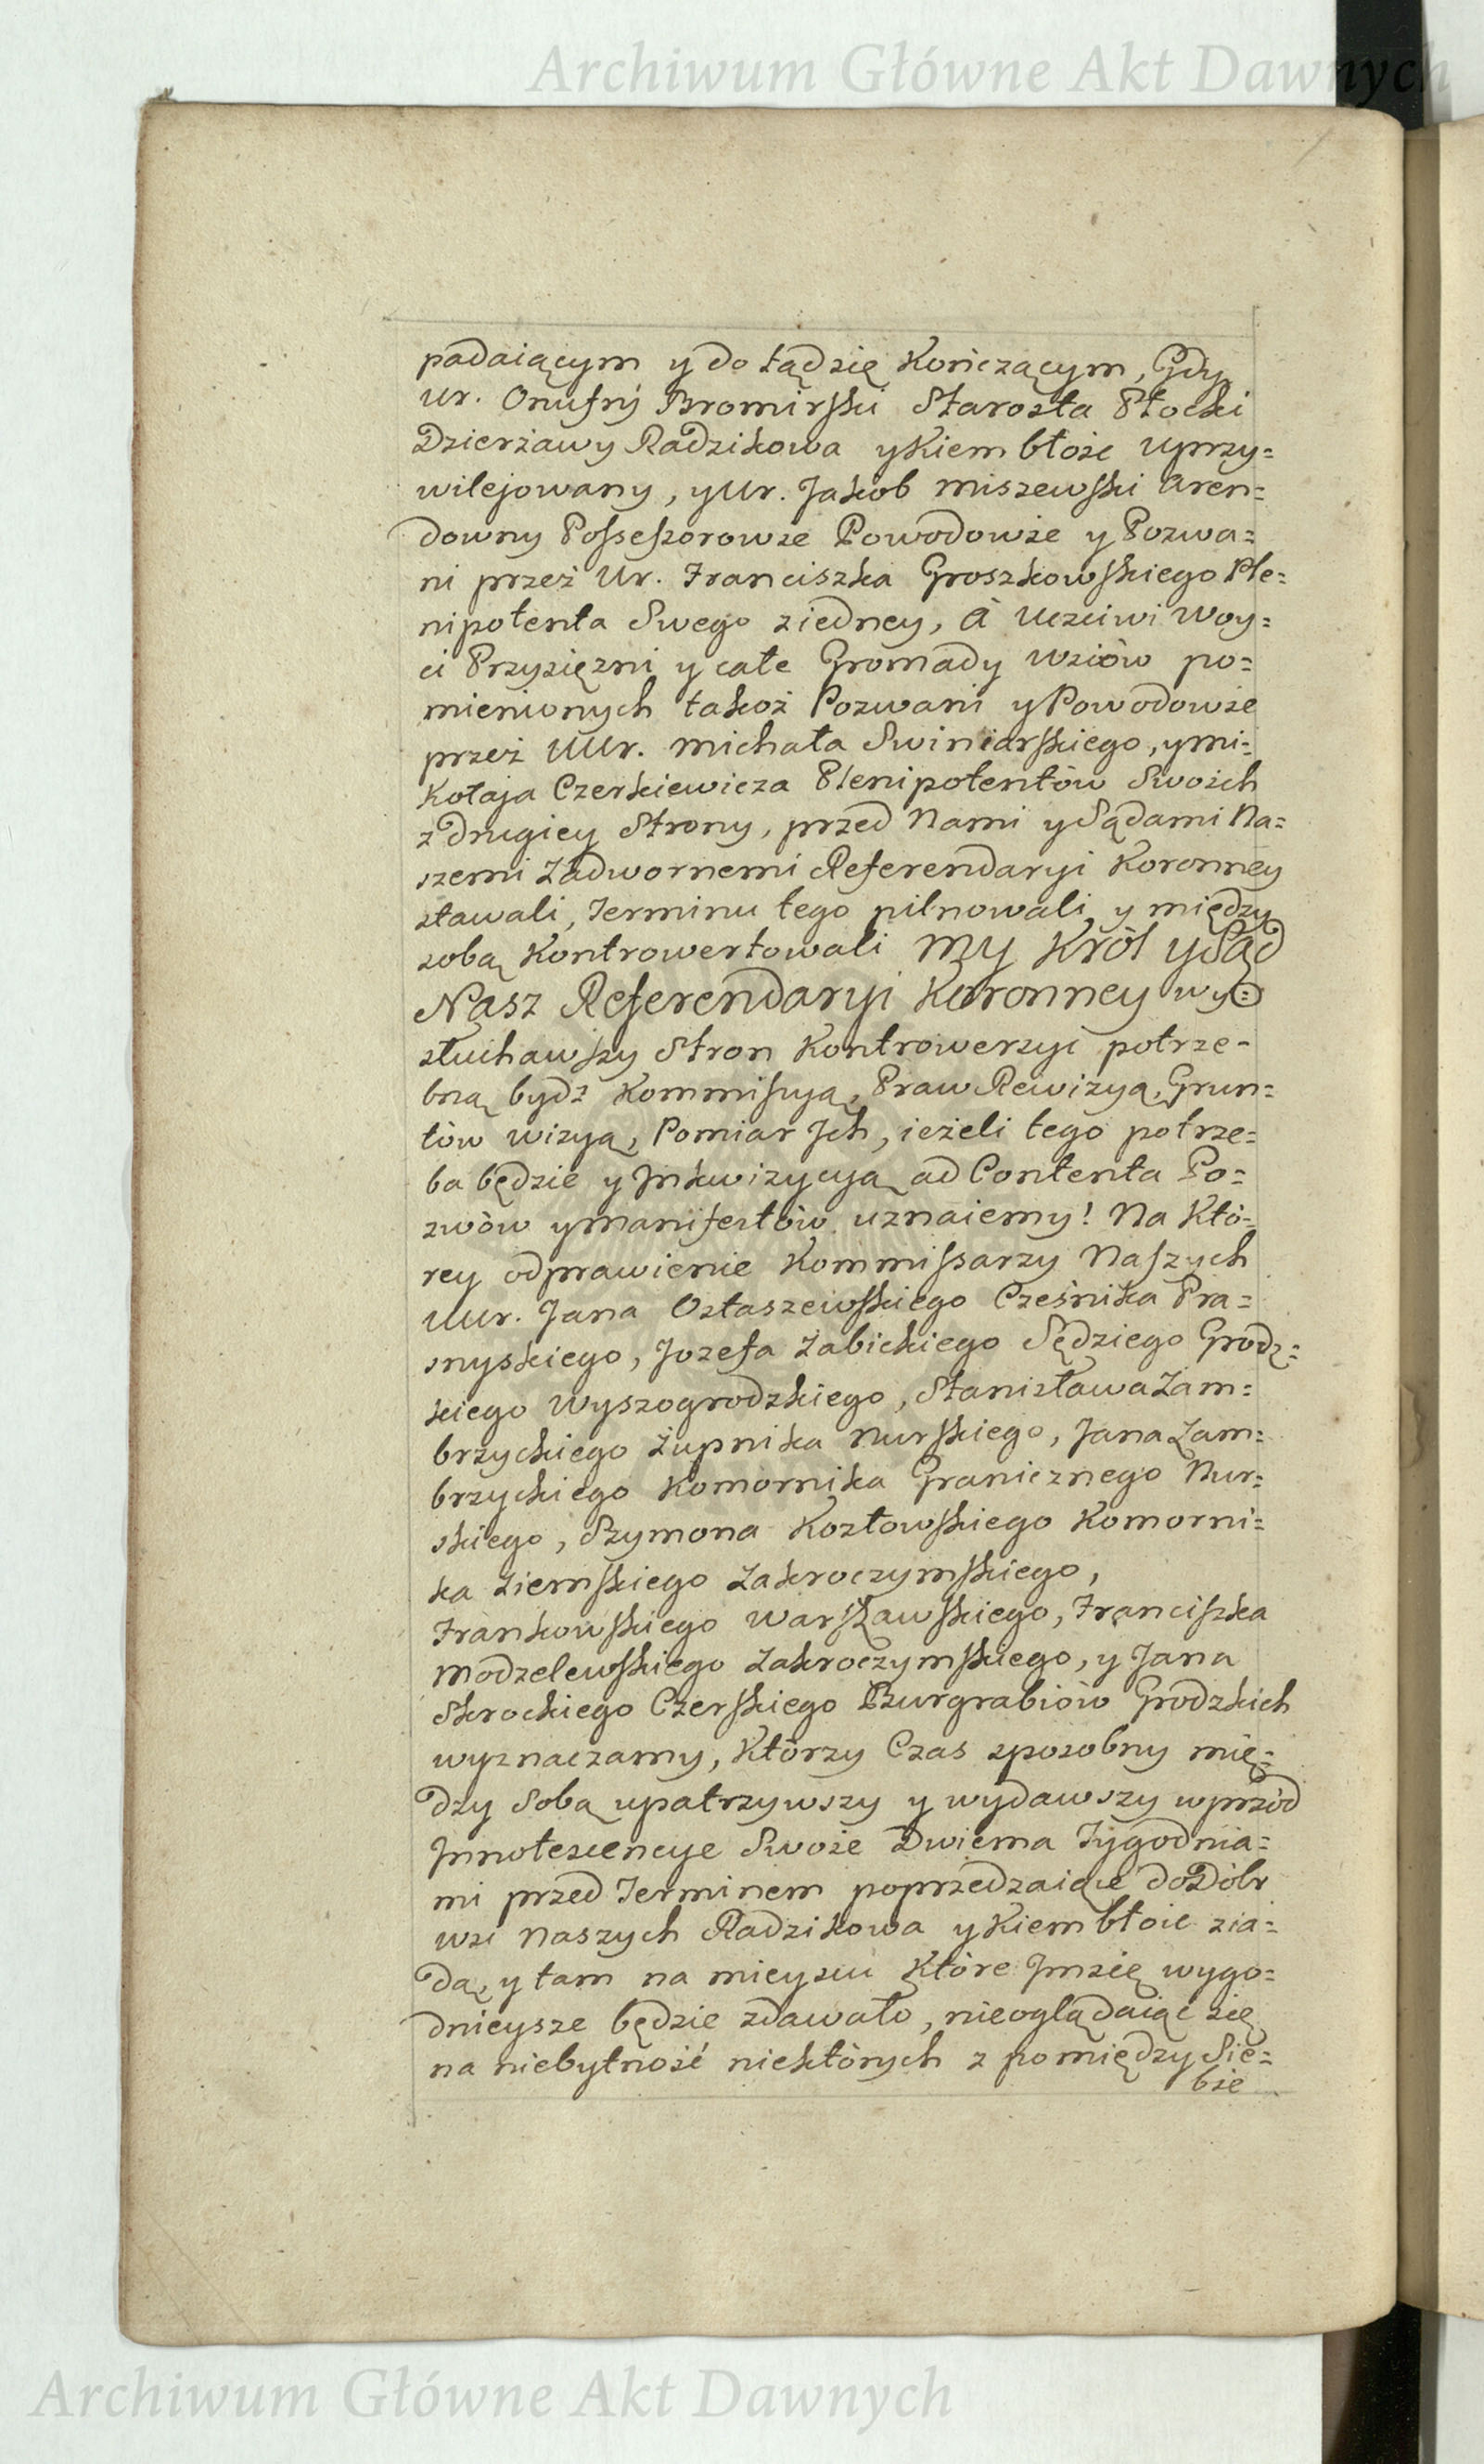 Archiwum Główne Akt Dawnych
padaiącym y do tądsię Kończącym, Gdy
Ur. Onufry Bromirski Starosta Płocki
Dzierżawy Radzikowa y Kiembłoże Uprzy=
wilejowany, y Ur. Jakób Miszewski Aren=
downy Possessorowie Powodowie y Pozwa=
ni przez Ur. Franciszka Groszkowskiego Ple=
nipotenta Swego ziedney, à Uczciwi Woy=
ci Przysięzni y całe Gromady Wsiów po=
mienionych takoż Pozwani y Powodowie
przez UUr. Michała Swiniarskiego, y Mi=
kołaja Czerkiewicza Plenipotentów Swoich
z drugiey Strony, przed Nami y Sądami Na=
szemi Zadwornemi Referendaryi Koronney
stawali, Terminu tego pilnowali y między
sobą Kontrowertowali My Król y Sąd
Nasz Referendaryi Koronney wy=
słuchawszy Stron Kontrowersyi potrze-
bną bydź Kommissyą, Praw Rewizyą, Grun=
tów wizyą, Pomiar Jch, ieżeli tego potrze=
ba będzie y Jnkwizycyą ad Contenta Po=
zwów y Manifestów uznaiemy! Na Któ=
rey odprawienie Kommissarzy Naszych
UUr. Jana Ostaszewskiego Cześnika Pra=
snyskiego, Jozefa Zabickiego Sędziego Grodz=
kiego Wyszogrodzkiego, Stanisława Zam=
brzyckiego Żupnika Nurskiego, Jana Zam=
brzyckiego Komornika Granicznego Nur=
skiego, Szymona Kozłowskiego Komorni=
ka Ziemskiego Zakroczymskiego,
Frankowskiego Warszawskiego, Franciszka
Modzelewskiego Zakroczymskiego, y Jana
Skrockiego Czerskiego Burgrabiów Grodzkich
wyznaczamy, Którzy Czas sposobny mię=
dzy Sobą upatrzywszy y wydawszy wprzód
Jnnotescencye Swoie Dwiema Tygodnia=
mi przed Terminem poprzedzaiące do Dóbr
wsi Naszych Radzikowa y Kiembłoie zia=
dą, y tam na mieyscu Które Jmsię wygo=
dnieysze będzie zdawało, nieoglądaiąc się
na niebytność niektórych z pomiędzy Sie=
bie
Archiwum Główne Akt Dawnych